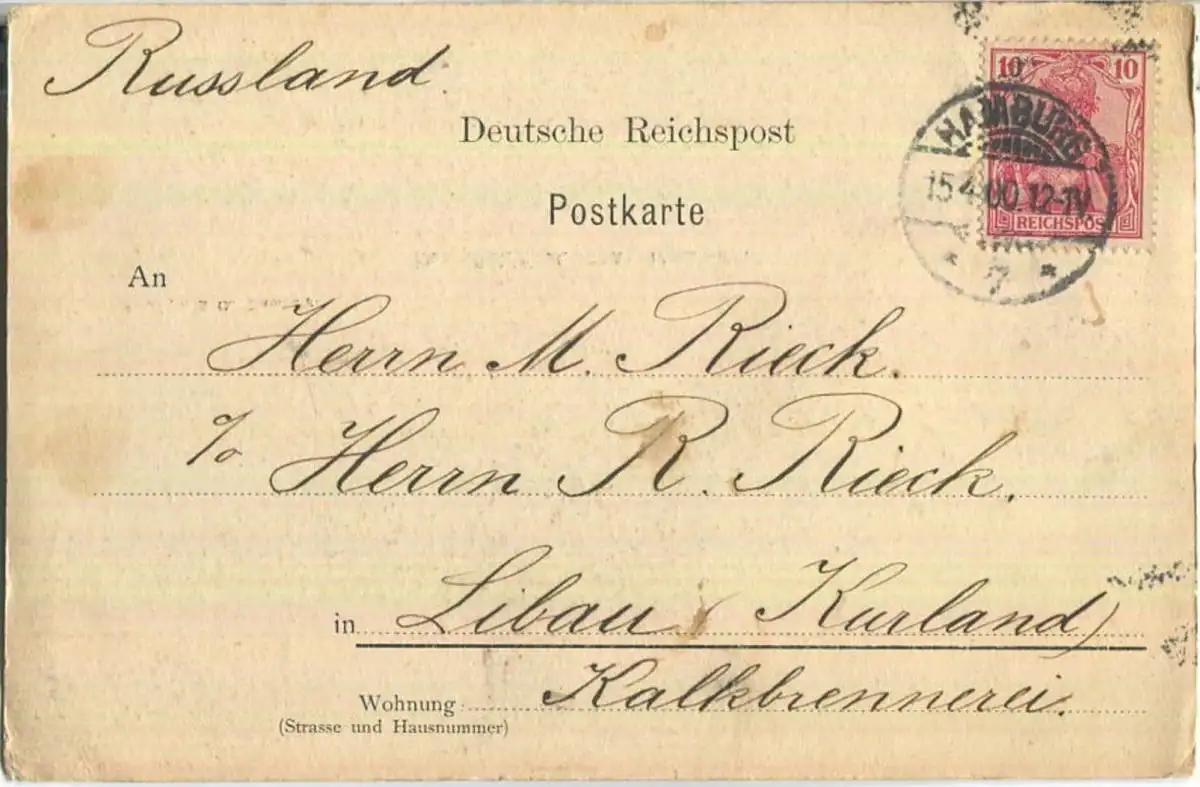 Russland.
10 10
Deutsche Reichspost
HAMBURG
15.4.00.12-1V.
REICHSPOST
* 7 *
Postkarte
An
Herrn M. Rieck.
%o Herrn R. Rieck.
in Libau (Kurland)
Kalkbrennerei.
Wohnung
(Strasse und Hausnummer)